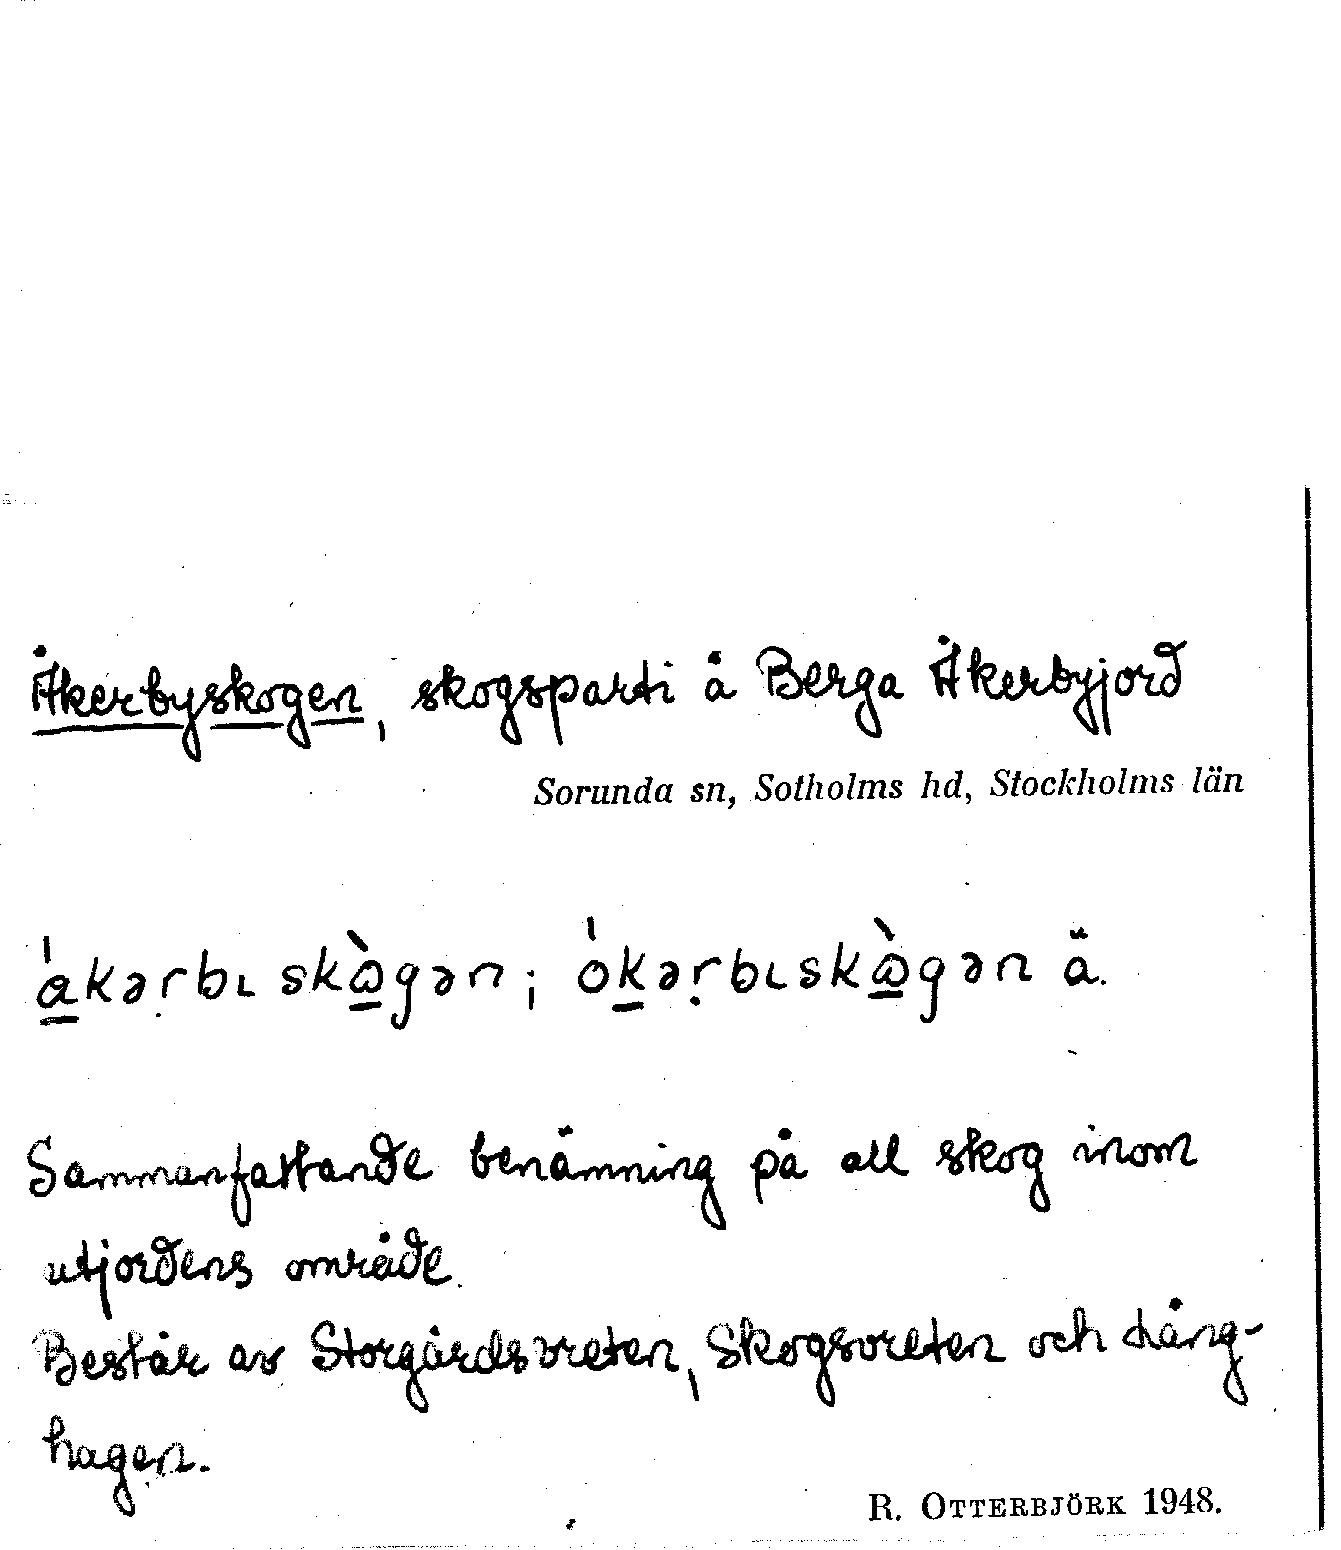 Åkerbyskogen, skogsparti å Berga Åkerbyjord
Sorunda sn, Sotholms hd, Stockholms län
sammanfattande benämning på all skog inom
utjordens område.
Består av Storgårdsvreten, Skogsvreten och Lång-
hagen.
R. OTTERBJÖRK 1948.